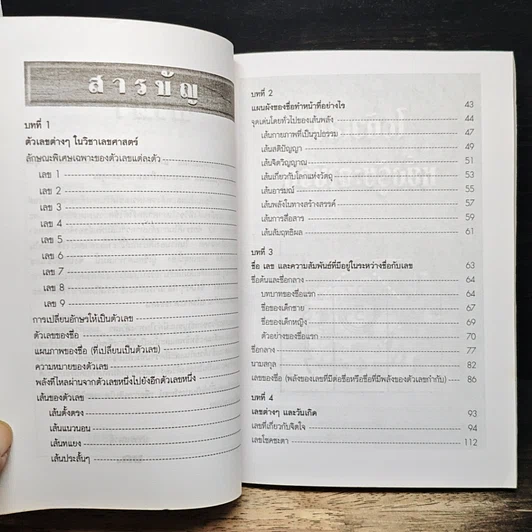 สารบัญ
บทที่ 1
ตัวเลขต่างๆ ในวิชาเลขศาสตร์
ลักษณะพิเศษเฉพาะของตัวเลขแต่ละตัว
เลข 1
เลข 2
เลข 3
เลข 4
เลข 5
เลข 6
เลข 7
เลข 8
เลข 9
การเปลี่ยนอักษรให้เป็นตัวเลข
ตัวเลขของชื่อ
แผนภาพของชื่อ (ที่เปลี่ยนเป็นตัวเลข)
ความหมายของตัวเลข
พลังที่ไหลผ่านจากตัวเลขหนึ่งไปยังอีกตัวเลขหนึ่ง
เส้นของตัวเลข
เส้นตั้งตรง
เส้นแนวนอน
เส้นทแยง
เส้นประสั้นๆ
บทที่ 2
แผนผังของชื่อทำหน้าที่อย่างไร 43
จุดเด่นโดยทั่วไปของเส้นพลัง 45
เส้นกายภาพที่เป็นรูปธรรม 47
เส้นสติปัญญา 49
เส้นจิตวิญญาณ 51
เส้นเกี่ยวกับโลกแห่งวัตถุ 53
เส้นอารมณ์ 55
เส้นพลังในทางสร้างสรรค์ 57
เส้นการสื่อสาร 59
เส้นสัมฤทธิผล 61
บทที่ 3
ชื่อ เลข และความสัมพันธ์ที่มีอยู่ในระหว่างชื่อกับเลข 63
ชื่อต้นและชื่อกลาง 64
บทบาทของชื่อแรก 64
ชื่อของเด็กชาย 67
ชื่อของเด็กหญิง 69
ตัวอย่างของชื่อแรก 70
ชื่อกลาง 77
นามสกุล 82
เลขของชื่อ (พลังของเลขที่มีต่อชื่อหรือชื่อที่มีพลังของตัวเลขกำกับ) 86
บทที่ 4
เลขต่างๆ และวันเกิด 93
เลขที่เกี่ยวกับจิตใจ 94
เลขโชคชะตา 112